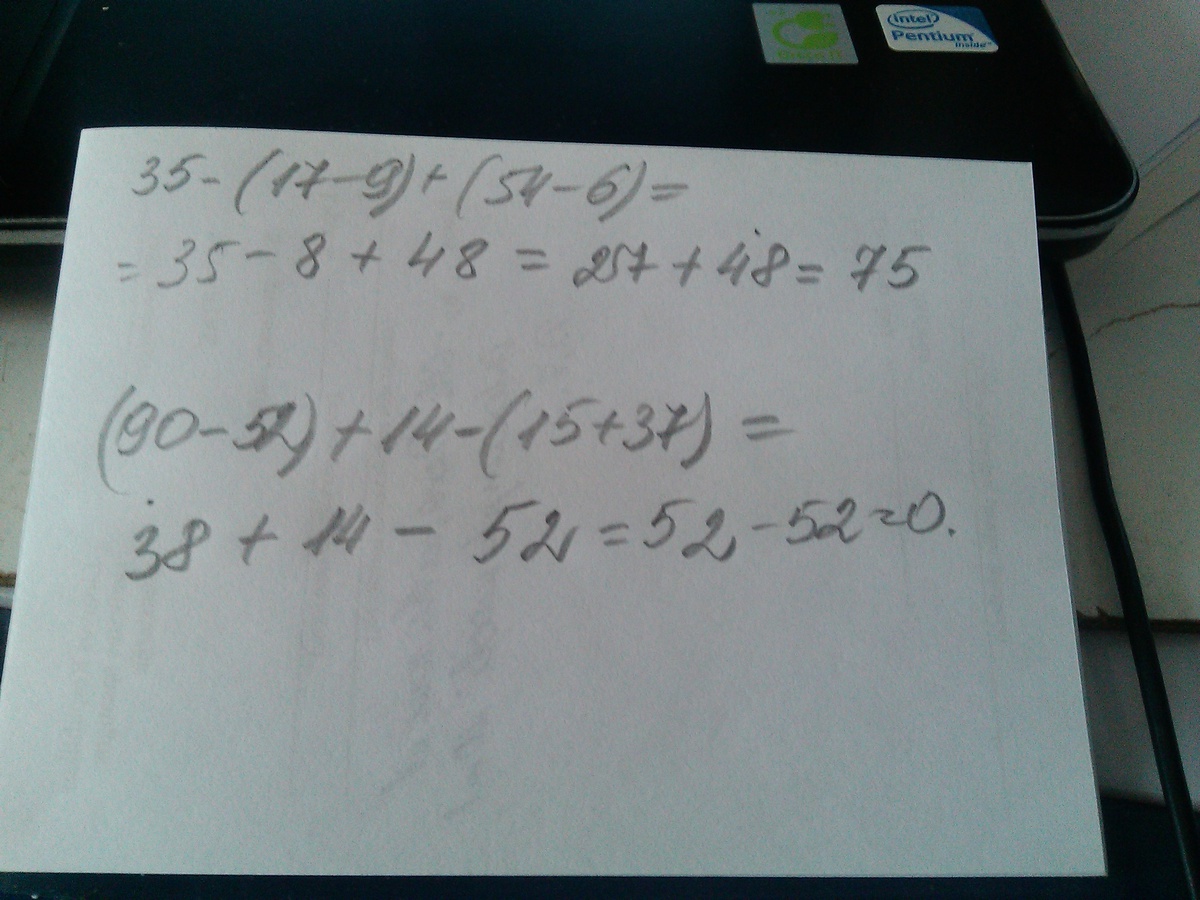 intel
Pentium
inside™
35-(17-9)+(54-6)=
= 35-8+48 = 27+48= 75
(90-52)+14-(15+37) =
38 + 14 - 52 = 52 - 52 = 0.